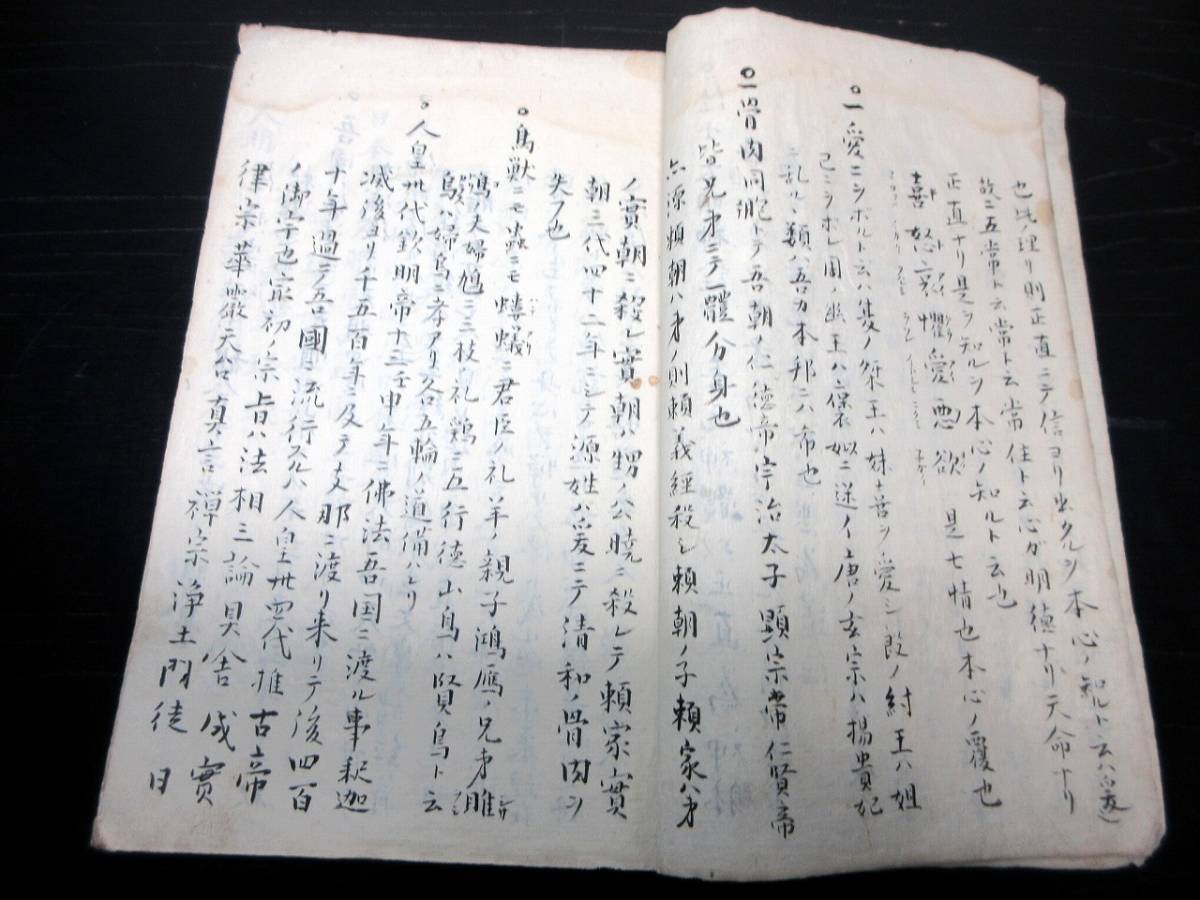 也此ノ理リ則正直ニテ信ヨリ出タルヲ本心ノ知ルト云ハ
故ニ五常ト云常ト云常住ト云心ガ明徳ナリ天命ナリ
正直ナリ是ヲ知ルヲ本心ノ知ルト云也
喜怒哀懼愛悪欲 是七情也本心ノ覆也
一愛ニヲボルト云ハ夏ノ桀王ハ妹喜ヲ愛シ殷ノ紂王ハ妲
己ニヲボレ周ノ幽王ハ褒姒ニ迷イ唐ノ玄宗ハ楊貴妃
ニ乱ルヽ類ハ吾カ本邦ニハ希也
一骨肉同胞トテ吾朝ノ仁徳帝宇治太子顕宗帝仁賢帝
皆兄弟ニテ一體分身也
源頼朝ハ弟ノ則頼義經殺シ頼朝ノ子頼家ハ弟
ノ實朝ニ殺レ實朝ハ甥ノ公暁ニ殺レテ頼家實
朝三代四十二年ニシテ源姓ハ爰ニテ清和ノ骨肉ヲ
失フ也
鳥獣ニモ蟲ニモ螻蟻ニ君臣ノ礼羊ノ親子鴻鴈ノ兄弟雎
鳩夫婦鳩ニ三枝ノ礼鶏ニ五行徳山鳥ハ賢鳥ト云
烏ハ婦鳥ニ孝アリ各五輪ノ道備ハレリ
人皇卅代欽明帝十三壬申年ニ佛法吾国ニ渡ル事釈迦
滅後ヨリ千五百年ニ及テ支那ニ渡リ来リテ後四百
十年過テ吾國ニ流行スルハ人皇卅四代推古帝
ノ御宇也最初ノ宗旨ハ法相三論具舎成實
律宗華嚴天台真言禅宗浄土門徒日